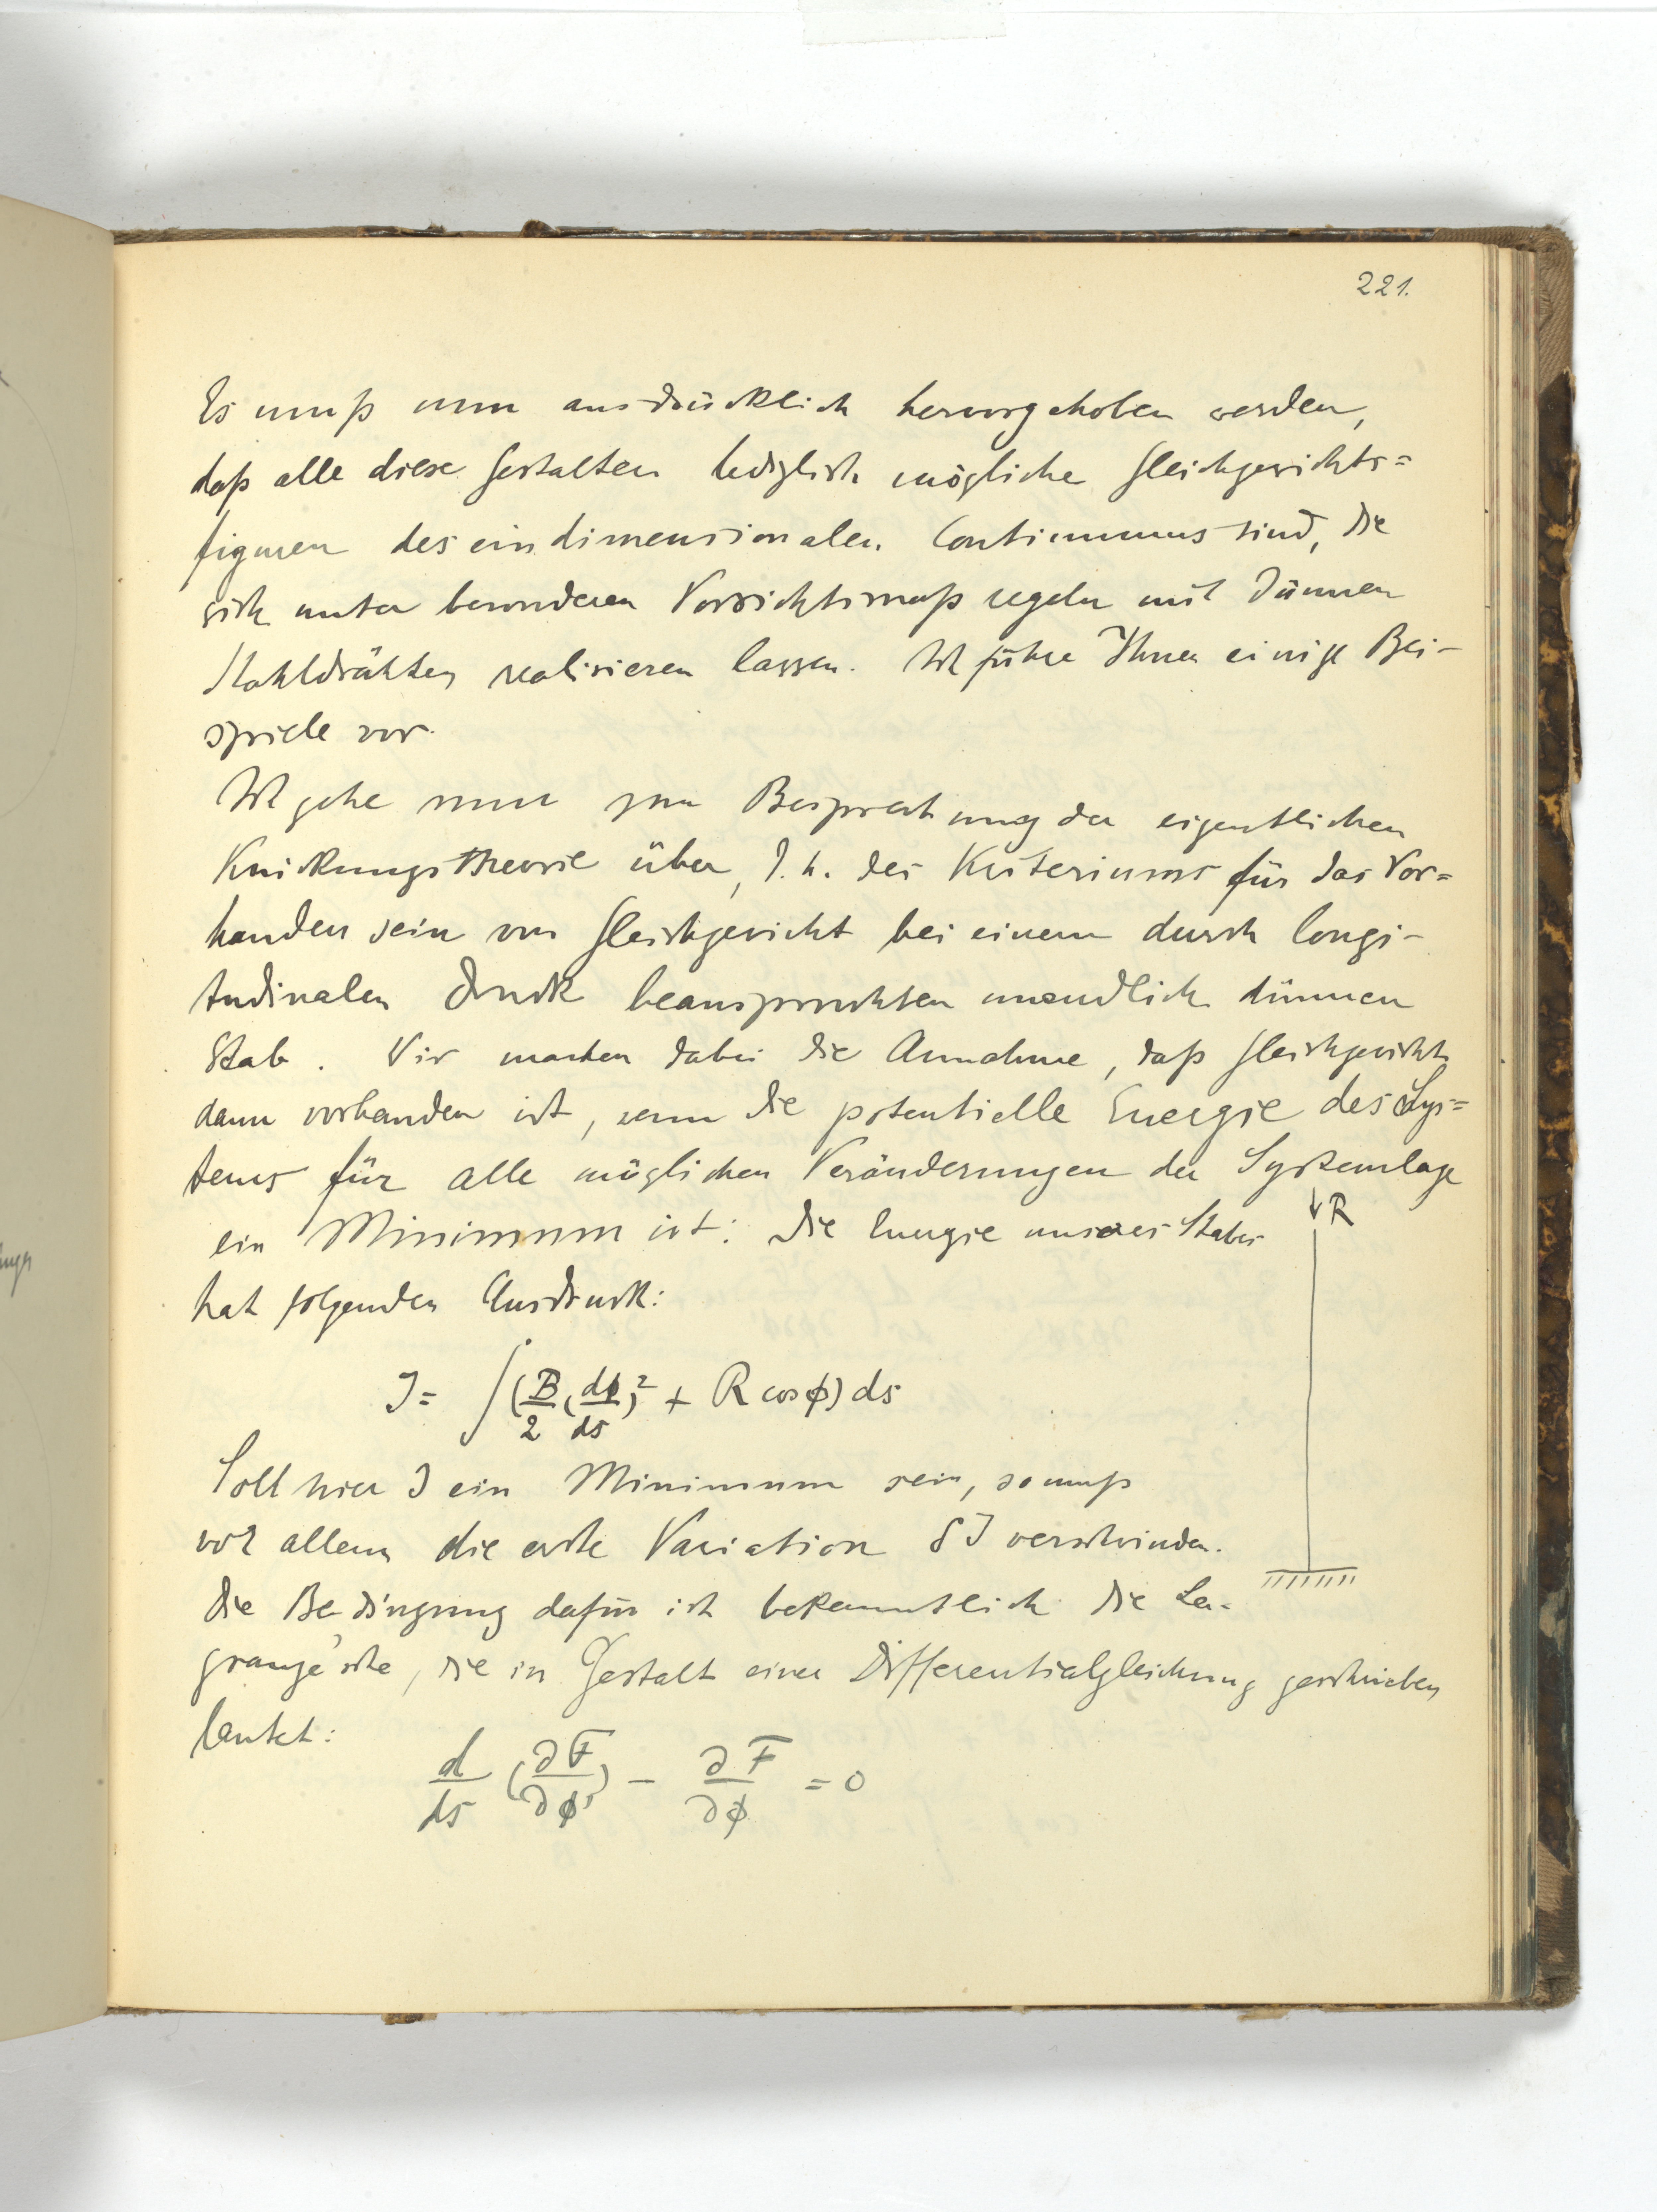 221.
Es muß nun ausdrücklich hervorgehoben werden,
daß alle diese Gestalten lediglich mögliche Gleichgewichts=
figuren des eindimensionalen Continuums sind, die
sich unter besonderen Vorsichtsmaßregeln mit dünnen
Stahldrähten realisieren lassen. Ich führe Ihnen einige Bei-
spiele vor.
Ich gehe nun zur Besprechung der eigentlichen
Knickungstheorie über, d.h. des Kriteriums für das Vor=
handen sein von Gleichgewicht bei einem durch longi-
tudinalen Druck beanspruchten unendlich dünnen
Stab. Wir machen dabei die Annahme, daß Gleichgewicht
dann vorhanden ist, wenn die potentielle Energie des Sys=
tems für alle möglichen Veränderungen der Systemlage
ein Minimum ist: Die Energie unseres Stabes
↓R
hat folgenden Ausdruck:
J = ∫(B/2 (dϕ/ds)² + R cos ϕ) ds
Soll hier J ein Minimum sein, so muß
vor allem die erste Variation δJ verschwinden.
Die Bedingung dafür ist bekanntlich die La-
grange'sche, die in Gestalt einer Differentialgleichung geschrieben
lautet:
d/ds (∂F/∂ϕ') - ∂F/∂ϕ = 0